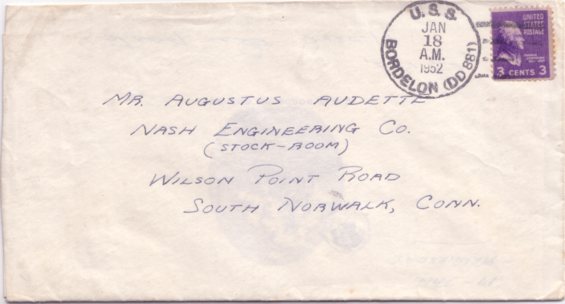 U.S.S.
JAN
18
A.M.
1952
BORDELON (DD 881)
UNITED
STATES
POSTAGE
3 CENTS 3
MR. AUGUSTUS AUDETTE
NASH ENGINEERING CO.
(STOCK-ROOM)
WILSON POINT ROAD
SOUTH NORWALK, CONN.